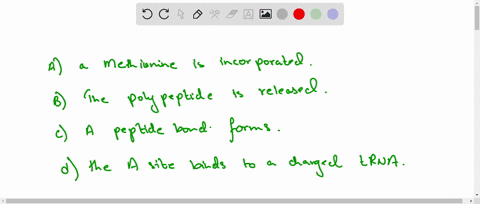 A) a Methionine is incorporated.
B) The polypeptide is released.
c) A peptide bond forms.
d) the A site binds to a charged tRNA.